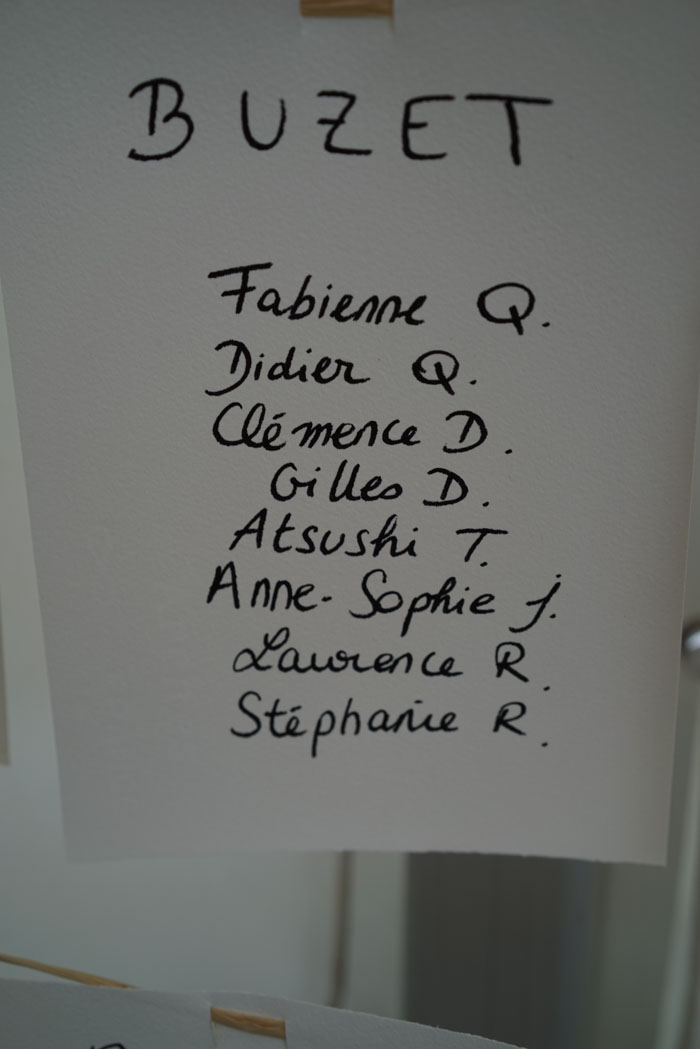 BUZET
Fabienne Q.
Didier Q.
Clémence D.
Gilles D.
Atsushi T.
Anne-Sophie J.
Laurence R.
Stéphanie R.